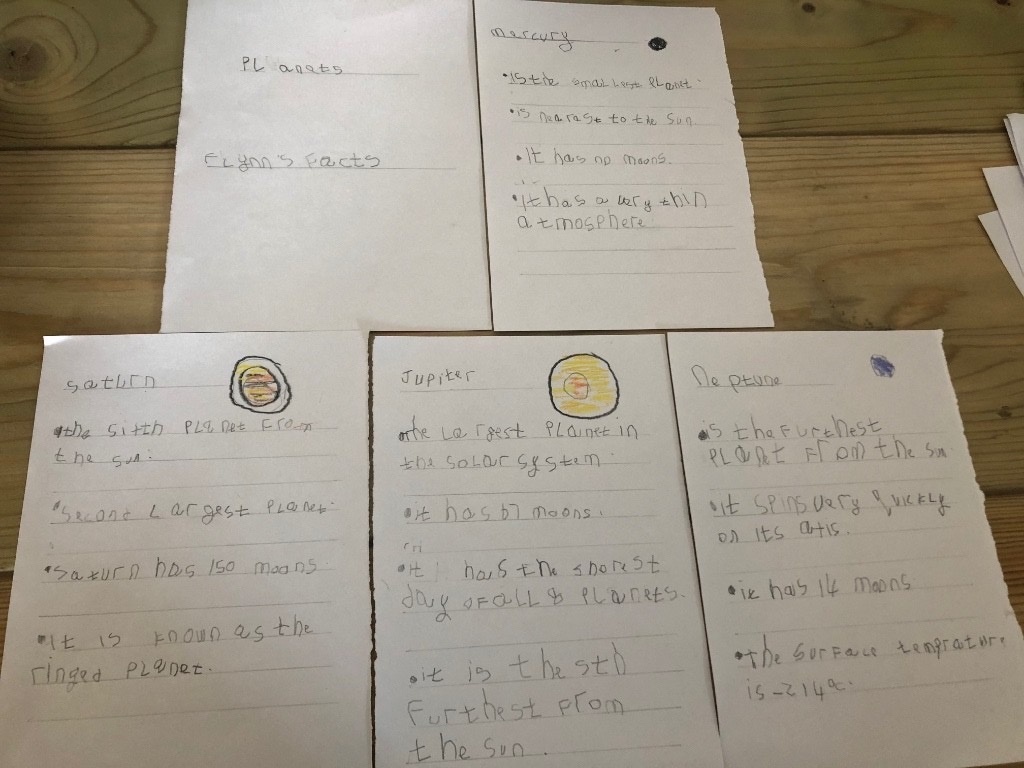 Planets
Flynn's Facts
Mercury
• Is the smallest planet.
• is nearast to the sun
• It has no moons.
• It has a very thin
atmosphere
saturn
• the sitth planet from
the sun.
• Second Largest planet.
• Saturn has 150 moons
• It is known as the
ringed planet.
Jupiter
the Largest planet in
the solar system.
• it has 67 moons.
• it has the shorest
day of all 8 planets.
• it is the 5th
furthest from
the sun.
Neptune
• is the furthest
planet from the sun
• it spins very quickly
on its atis.
• it has 14 moons
• The surface temprature
is -214°c.